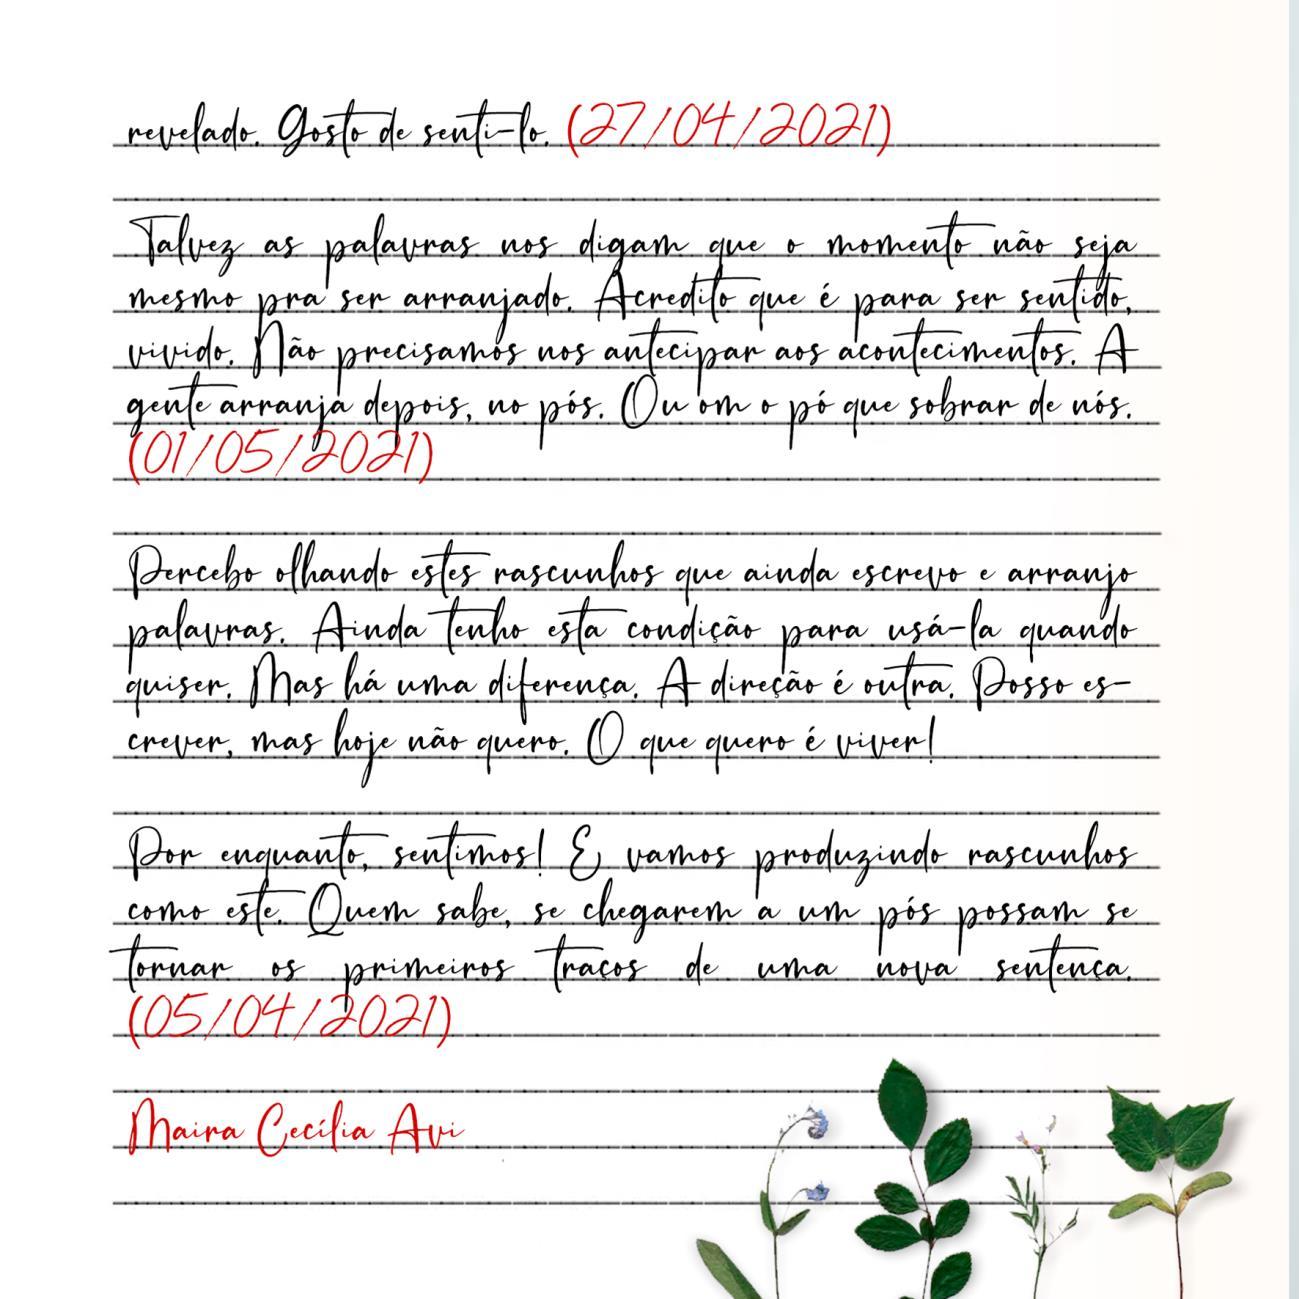 revelado. Gosto de senti-lo. (27/04/2021)
Talvez as palavras nos digam que o momento não seja
mesmo pra ser arranjado. Acredito que é para ser sentido,
vivido. Não precisamos nos antecipar aos acontecimentos. A
gente arranja depois, no pós. Ou om o pó que sobrar de nós.
(01/05/2021)
Percebo olhando estes rascunhos que ainda escrevo e arranjo
palavras. Ainda tenho esta condição para usá-la quando
quiser. Mas há uma diferença. A direção é outra. Posso es-
crever, mas hoje não quero. O que quero é viver!
Por enquanto, sentimos! E vamos produzindo rascunhos
como este. Quem sabe, se chegarem a um pós possam se
tornar os primeiros traços de uma nova sentença.
(05/04/2021)
Maira Cecília Avi